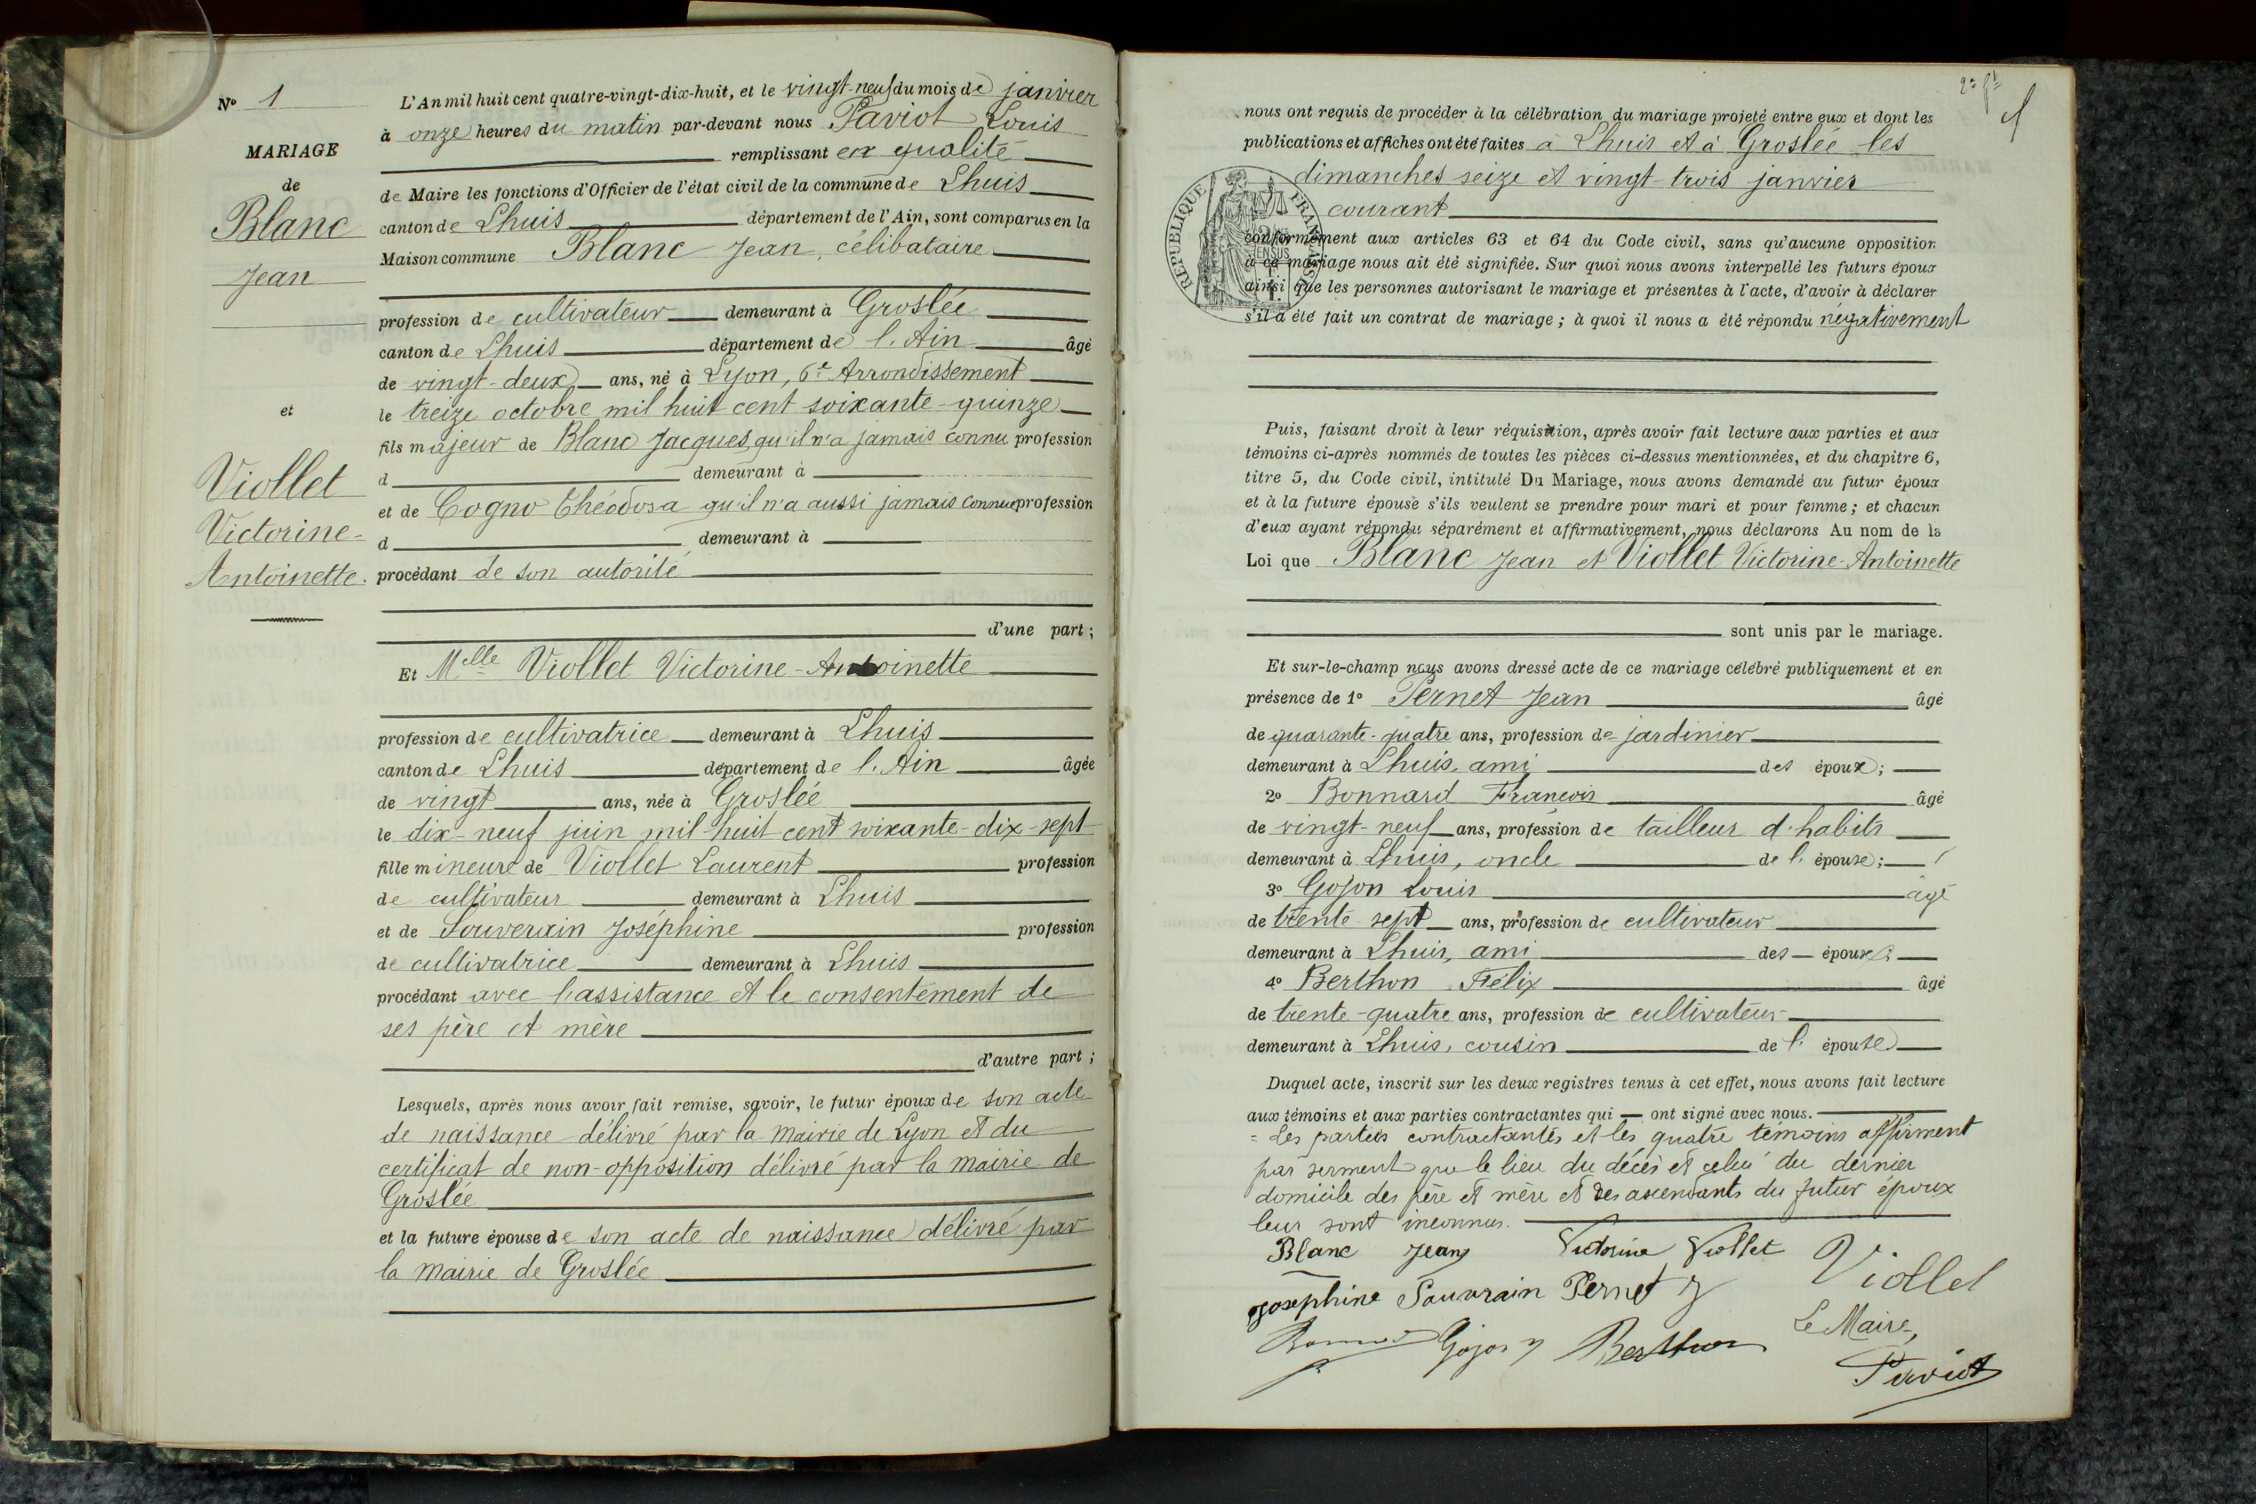 N° 1
MARIAGE
de
Blanc
Jean
et
Viollet
Victorine-
Antoinette.
L'An mil huit cent quatre-vingt-dix-huit, et le vingt-neuf du mois de janvier
à onze heures du matin par-devant nous Paviot Louis
remplissant en qualité
de Maire les fonctions d'Officier de l'état civil de la commune de Lhuis
canton de Lhuis département de l'Ain, sont comparus en la
Maison commune Blanc Jean, célibataire
profession de cultivateur demeurant à Groslée
canton de Lhuis département de l'Ain âgé
de vingt-deux ans, né à Lyon, 6e Arrondissement
le treize octobre mil huit cent soixante-quinze
fils majeur de Blanc Jacques, qu'il n'a jamais connu profession
d demeurant à
et de Cogno Théodosa qu'il n'a aussi jamais connue profession
d demeurant à
procédant de son autorité
d'une part;
Et Melle Viollet Victorine-Antoinette
profession de cultivatrice demeurant à Lhuis
canton de Lhuis département de l'Ain âgée
de vingt ans, née à Groslée
le dix-neuf juin mil-huit cent soixante-dix-sept
fille mineure de Viollet Laurent profession
de cultivateur demeurant à Lhuis
et de Souverain Joséphine profession
de cultivatrice demeurant à Lhuis
procédant avec l'assistance et le consentement de
ses père et mère
d'autre part;
Lesquels, après nous avoir fait remise, savoir, le futur époux de son acte
de naissance délivré par la mairie de Lyon et du
certificat de non-opposition délivré par la mairie de
Groslée
et la future épouse de son acte de naissance délivré par
la mairie de Groslée
nous ont requis de procéder à la célébration du mariage projeté entre eux et dont les
publications et affiches ont été faites à Lhuis et à Groslée les
dimanches seize et vingt-trois janvier
courant
RÉPUBLIQUE FRANÇAISE
conformément aux articles 63 et 64 du Code civil, sans qu'aucune opposition
à ce mariage nous ait été signifiée. Sur quoi nous avons interpellé les futurs époux
ainsi que les personnes autorisant le mariage et présentes à l'acte, d'avoir à déclarer
s'il a été fait un contrat de mariage; à quoi il nous a été répondu négativement
Puis, faisant droit à leur réquisition, après avoir fait lecture aux parties et aux
témoins ci-après nommés de toutes les pièces ci-dessus mentionnées, et du chapitre 6,
titre 5, du Code civil, intitulé Du Mariage, nous avons demandé au futur époux
et à la future épouse s'ils veulent se prendre pour mari et pour femme; et chacun
d'eux ayant répondu séparément et affirmativement, nous déclarons Au nom de la
Loi que Blanc Jean et Viollet Victorine-Antoinette
sont unis par le mariage.
Et sur-le-champ nous avons dressé acte de ce mariage célébré publiquement et en
présence de 1° Pernet Jean âgé
de quarante-quatre ans, profession de jardinier
demeurant à Lhuis, ami des époux;
2° Bonnard François âgé
de vingt-neuf ans, profession de tailleur d'habits
demeurant à Lhuis, oncle de l'épouse;
3° Gojon Louis âgé
de trente-sept ans, profession de cultivateur
demeurant à Lhuis, ami des époux;
4° Berthon Félix âgé
de trente-quatre ans, profession de cultivateur
demeurant à Lhuis, cousin de l'épouse
Duquel acte, inscrit sur les deux registres tenus à cet effet, nous avons fait lecture
aux témoins et aux parties contractantes qui ont signé avec nous.
= Les parties contractantes et les quatre témoins affirment
par serment que le lieu du décès et celui du dernier
domicile des père et mère et des ascendants du futur époux
leur sont inconnus.
Blanc Jean Victorine Viollet Viollet
Josephine Souvrain Pernet J
Bonnard Gojon Berthon Le Maire,
Paviot